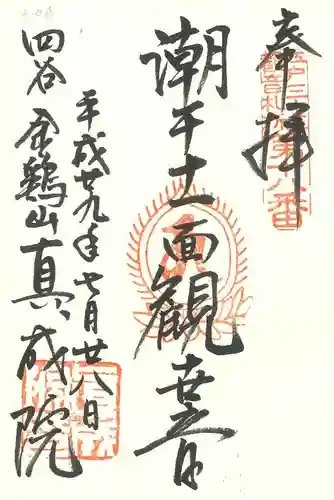 奉拝
江戸三十三
観音札所第十八番
潮干十一面観世音
平成廿九年七月廿八日
四谷 金鶏山真成院